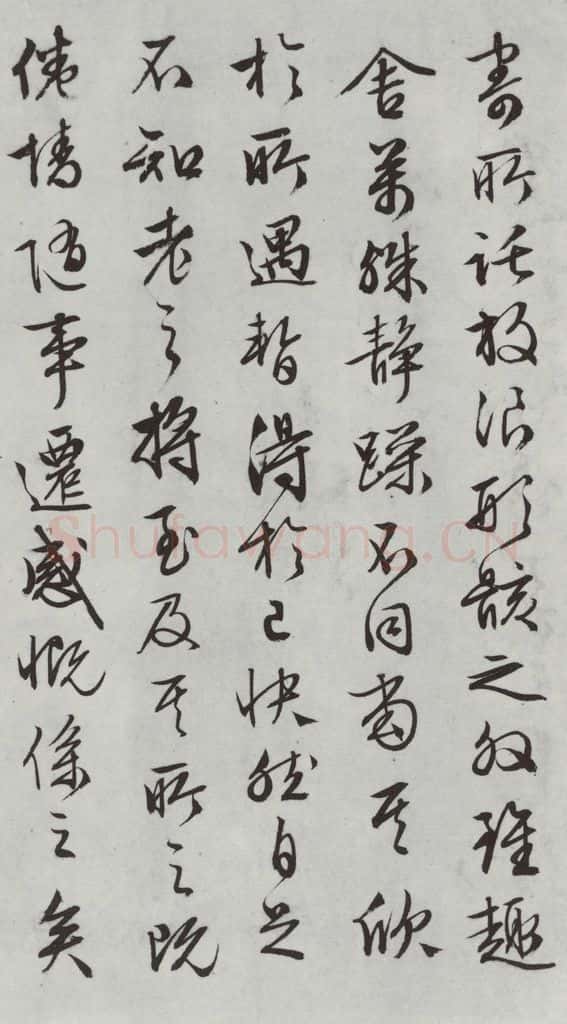 寄所托放浪形骸之外雖趣
舍萬殊靜躁不同當其欣
於所遇暫得於己快然自足
不知老之將至及其所之既
倦情隨事遷感慨係之矣
Shufawang.CN